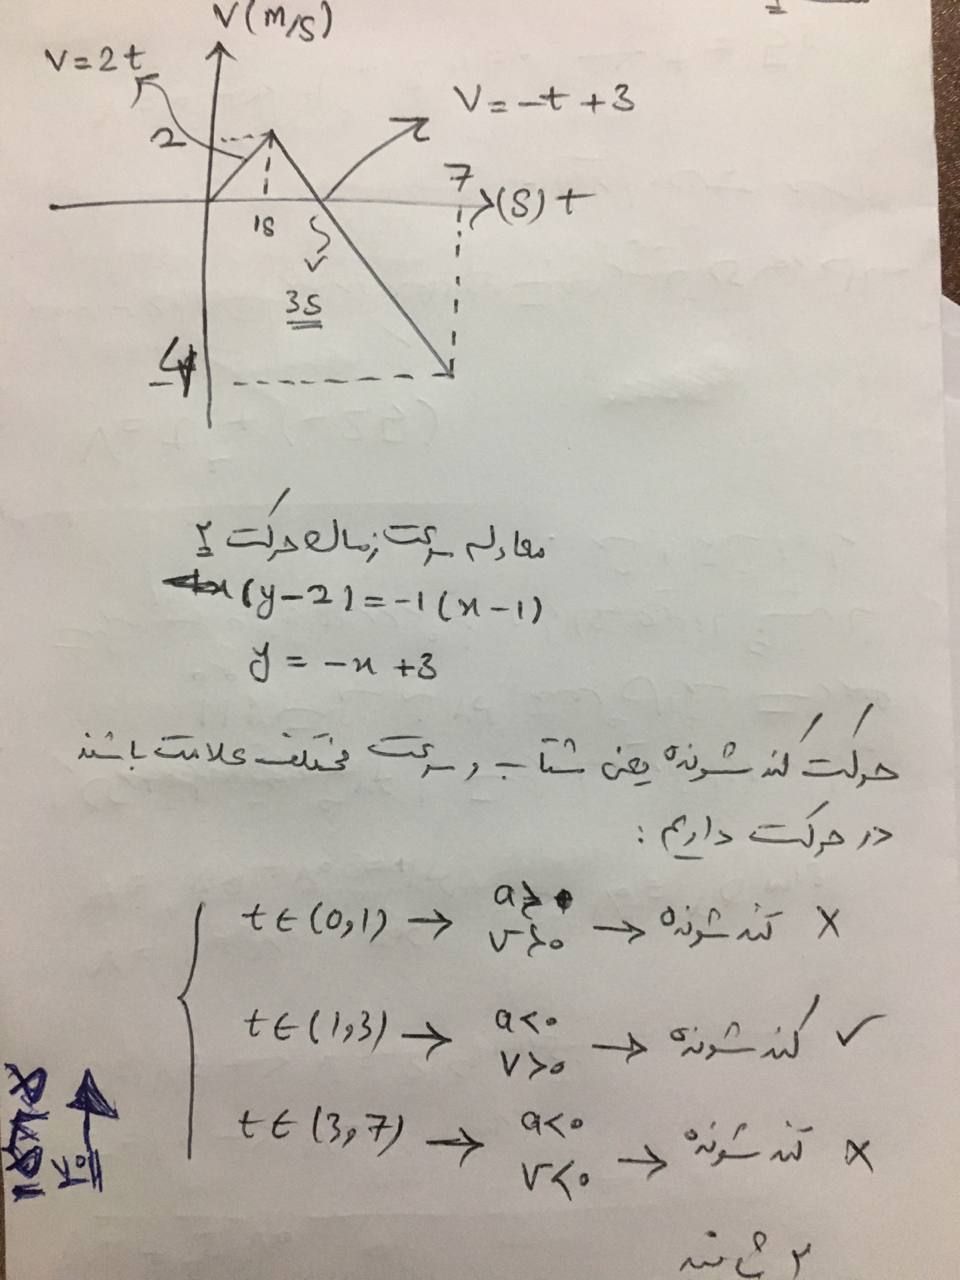 V(m/s)
V=2t
V=-t+3
2
7
(s) t
1s
3s
-4
معادله سرعت زمان حرکت ۲
(y-2)=-1(x-1)
y=-x+3
حرکت کند شونده یعنی شتاب و سرعت مختلف علامت باشند
در حرکت داریم:
t∈(0,1) → a>0 v>0 → کند شونده ×
t∈(1,3) → a<0 v>0 → کند شونده ✓
t∈(3,7) → a<0 v<0 → کند شونده ×